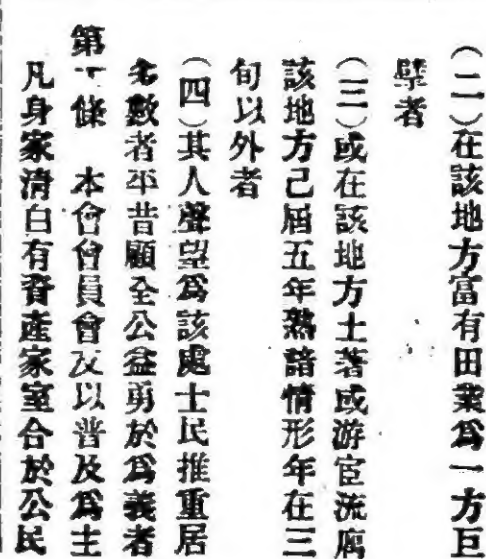 (二)在該地方富有田業爲一方巨
擘者
(三)或在該地方土著或游宦流寓
該地方己屆五年熟諳情形年在三
旬以外者
(四)其人聲望爲該處士民推重居
多數者平昔顧全公益勇於爲義者
第十條 本會會員會友以普及爲主
凡身家清白有資產家室合於公民